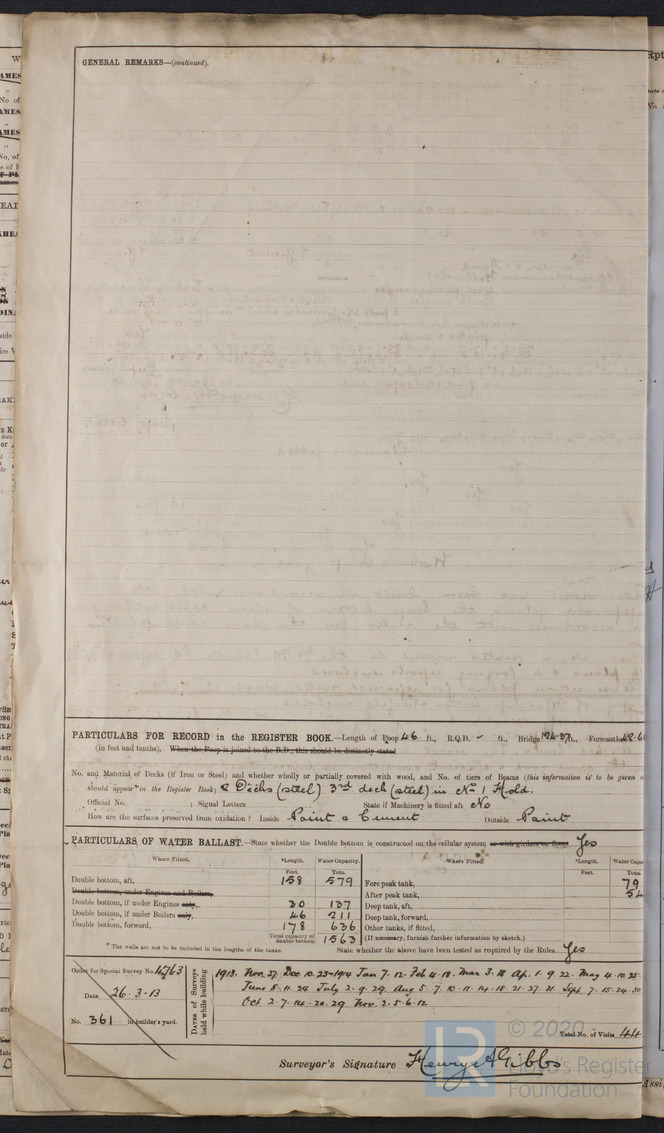 GENERAL REMARKS—(continued).
PARTICULARS FOR RECORD in the REGISTER BOOK.—Length of Poop 46 ft., R.Q.D. ft., Bridge 194.37 ft., Forecastle
(in feet and tenths), When the Poop is joined to the B.D., this should be distinctly stated
No. and Material of Decks (if Iron or Steel) and whether wholly or partially covered with wood, and No. of tiers of Beams (this information is to be given
should appear in the Register Book) 2 Decks (steel) 3rd deck (steel) in No 1 Hold.
Official No. ; Signal Letters State if Machinery is fitted aft No
How are the surfaces preserved from oxidation? Inside Paint & Cement Outside Paint
PARTICULARS OF WATER BALLAST.—State whether the Double bottom is constructed on the cellular system or with girders on floors Yes
Where Fitted. *Length. Water Capacity. Where Fitted. *Length. Water Capa
Feet. Tons. Feet. Tons.
Double bottom, aft, 158 579 Fore peak tank, 79
Double bottom, under Engines and Boilers, After peak tank,
Double bottom, if under Engines only, 30 137 Deep tank, aft,
Double bottom, if under Boilers only, 46 211 Deep tank, forward,
Double bottom, forward, 178 636 Other tanks, if fitted,
Total capacity of double bottom 1563 (If necessary, furnish further information by sketch.)
* The wells are not to be included in the lengths of the tanks. State whether the above have been tested as required by the Rules Yes
Order for Special Survey No. 4763
Date 26-3-13
No. 361 in builder's yard.
Dates of Surveys held while building
1913. Nov. 27. Dec 10. 23 - 1914 Jan 7. 12. Feb 4. 18. Mar 3. 18 Ap. 1. 9. 22. May 4. 10. 25
June 8. 11. 24 July 2. 9. 29. Aug 5. 7. 10. 11. 14. 18. 21. 27. 31. Sept. 7. 15. 24. 30
Oct. 2. 7. 14. 20. 29. Nov. 2. 5. 6. 12
Total No. of Visits 44
Surveyor's Signature Henry A Gibbs
© 2020
Lloyd's Register
Foundation